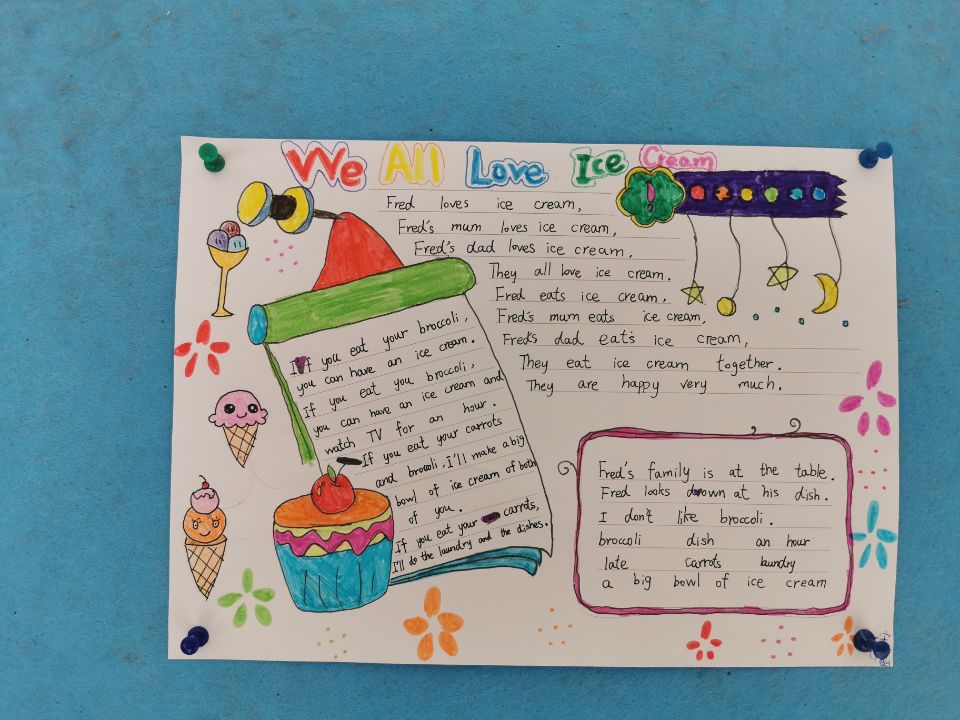 We All Love Ice Cream
Fred loves ice cream,
Fred's mum loves ice cream,
Fred's dad loves ice cream,
They all love ice cream.
Fred eats ice cream,
Fred's mum eats ice cream,
Fred's dad eats ice cream,
They eat ice cream together.
They are happy very much.
If you eat your broccoli,
you can have an ice cream.
If you eat you broccoli,
you can have an ice cream and
watch TV for an hour.
If you eat your carrots
and broccoli, I'll make a big
bowl of ice cream of both
of you.
If you eat your carrots,
I'll do the laundry and the dishes.
Fred's family is at the table.
Fred looks down at his dish.
I don't like broccoli.
broccoli dish an hour
late carrots laundry
a big bowl of ice cream